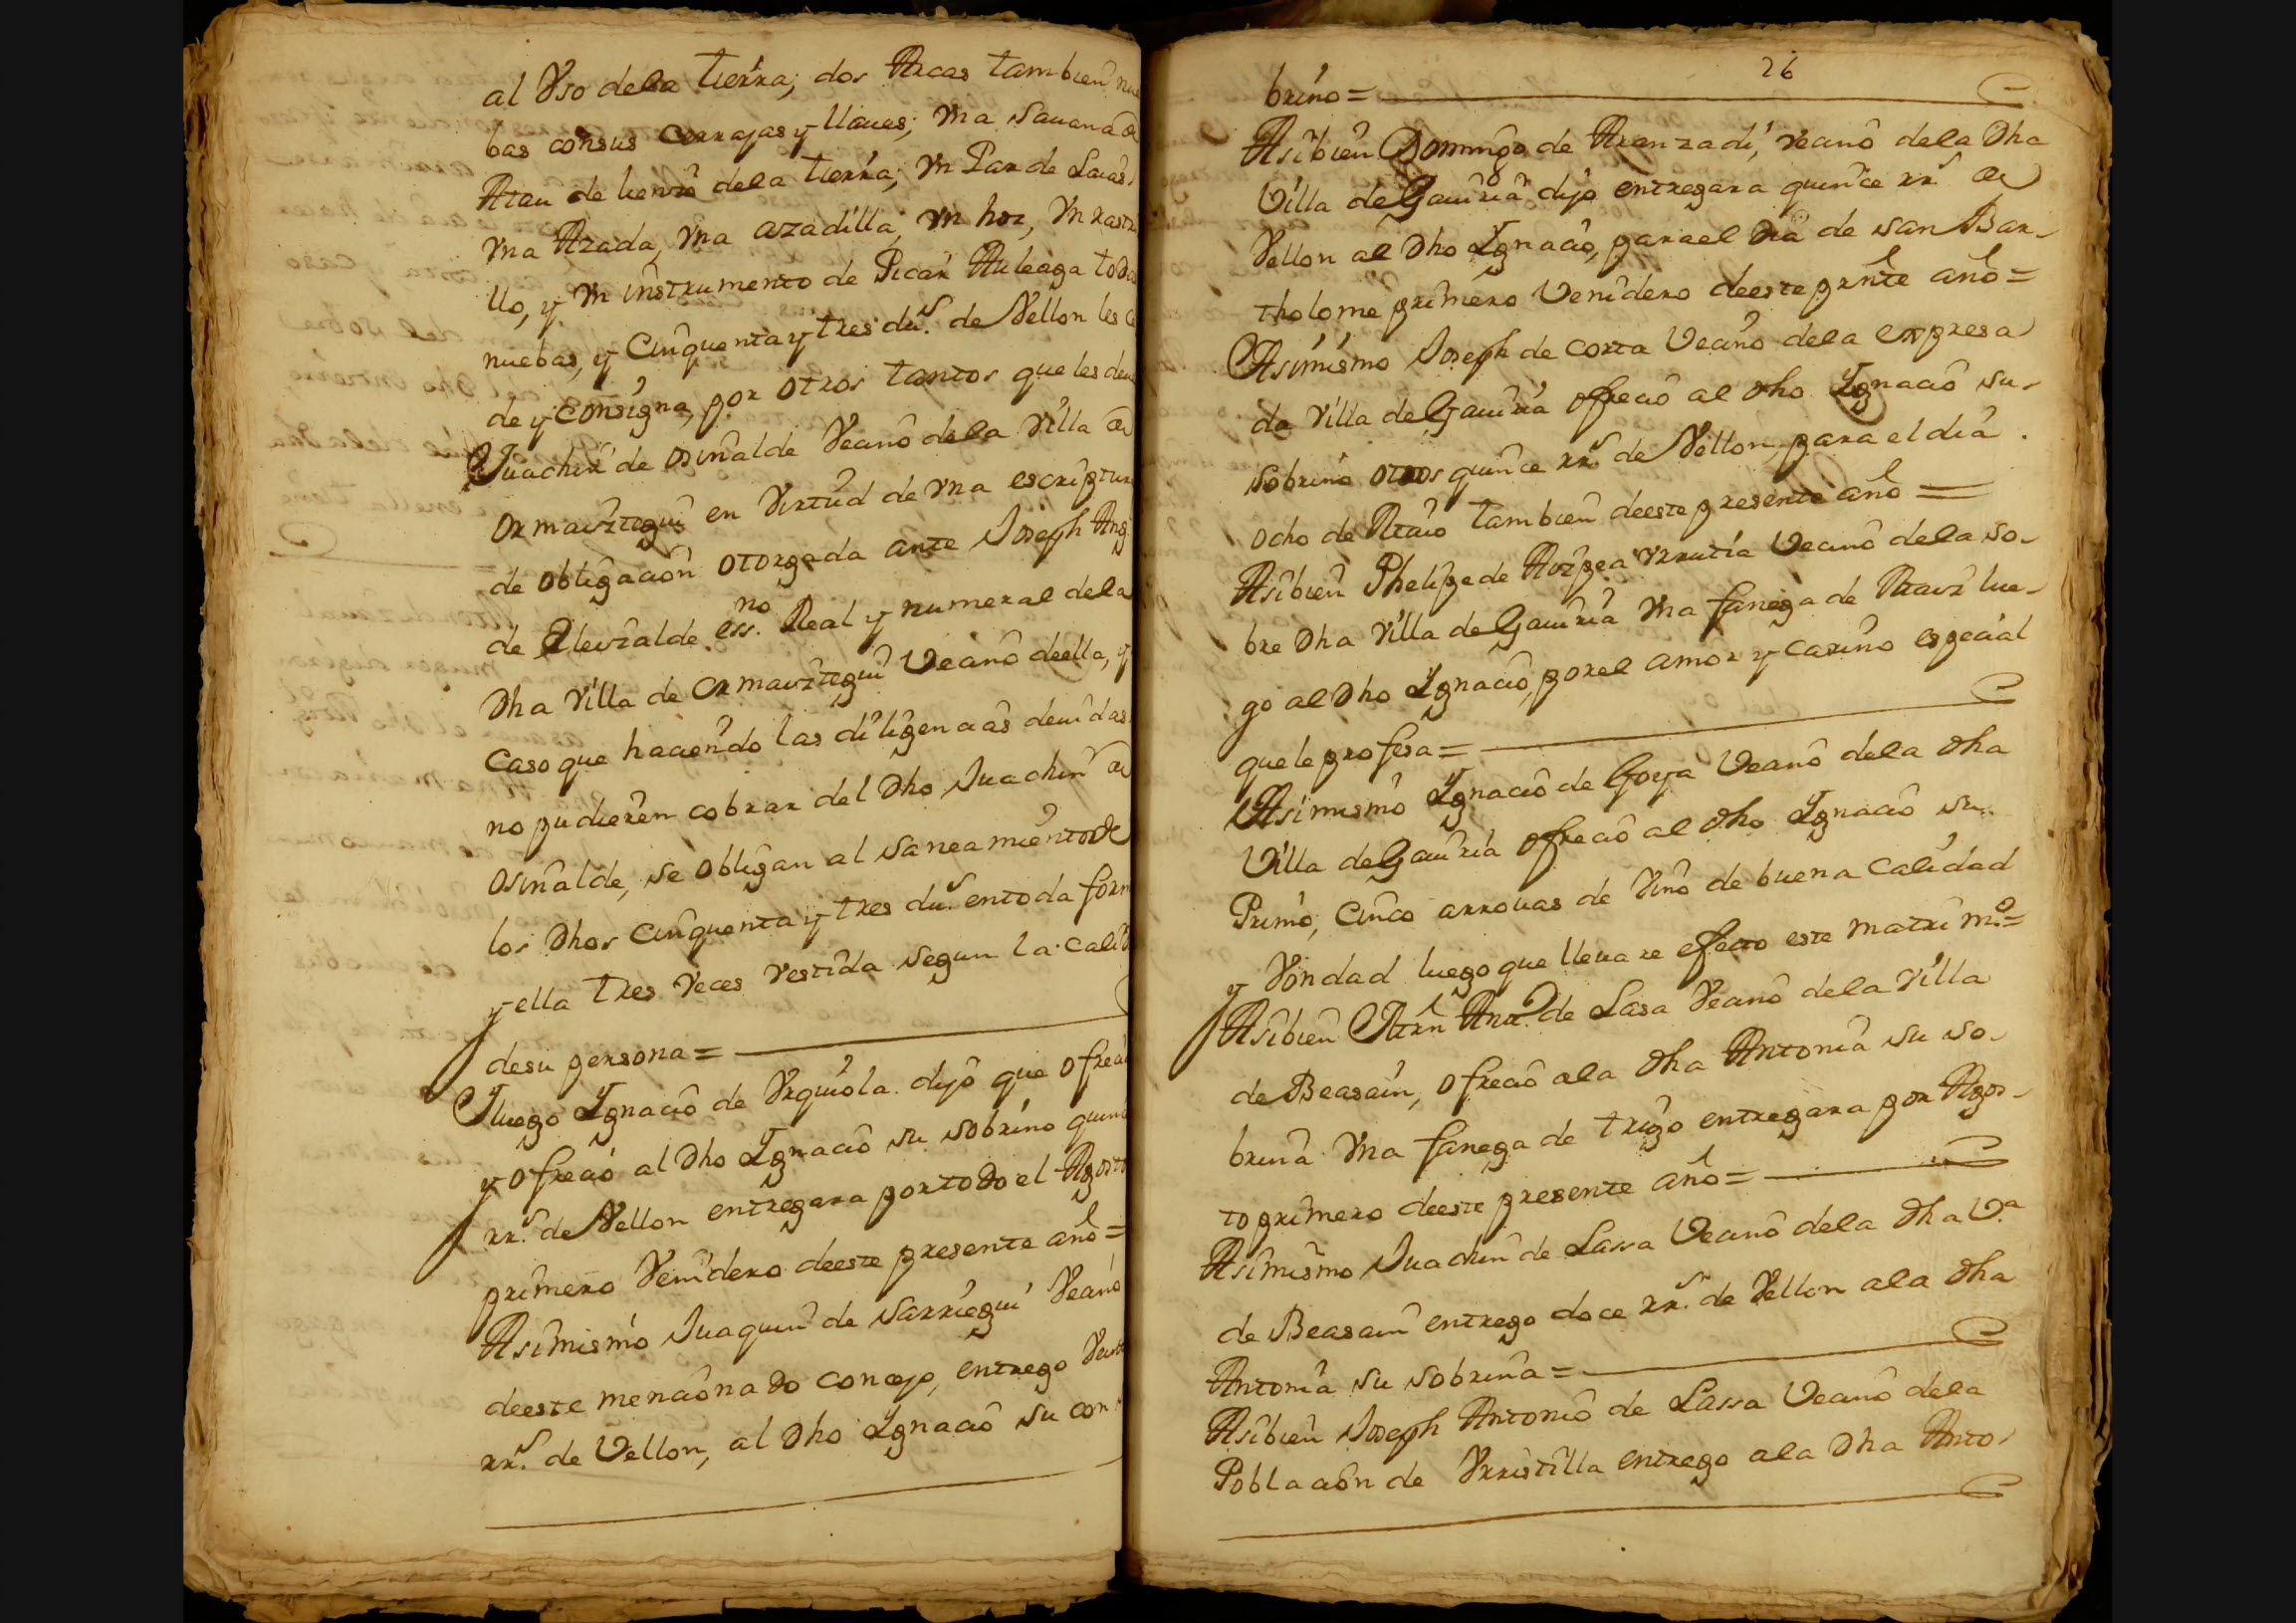 al Vso dela tierra; dos Arcas tambien nue
bas consus cerrajas y llaues; Vna Sauana de
Atau de lienzo dela tierra; Vn Par de Laias,
Vna Azada, Vna azadilla, Vn hoz, Vn rastri
llo, y Vn instrumento de Picar Auleaga todas
nuebas, y Cinquenta y tres dus. de Vellon les ce
de y consigna, por otros tantos que les deue
Juachin de osinalde Vecino dela Villa de
ormaiztegui en Virtud de Vna escriptura
de obligacion otorgada ante Joseph Ang
de Eleizalde essno. Real y numeral dela
Dha Villa de ormaiztegui Vecino deella, y
caso que haciendo las diligencias deuidas
no pudieren cobrar del Dho Juachin de
osinalde, se obligan al saneamiento de
los Dhos cinquenta y tres dus. entoda form
y ella tres Veces Vestida segun la calid
desu persona =
Iluego Ignacio de Vrquiola dijo que ofrecia
y ofrecio al Dho Ignacio su sobrino quince
rrs. de Vellon entregara por todo el Agosto
primero Venidero deeste presente año =
Asimismo Juaquin de Sarriegui Vecino
deeste mencionado concejo, entrego Veinte
rrs. de Vellon, al Dho Ignacio su con
26
brino =
Asibien Domingo de Aranzadi, Vecino dela Dha
Villa de Gauiria dijo entregara quince rrs. de
Vellon al Dho Ignacio, parael Dia de san Bar-
tholome primero Venidero deeste prnte año =
Asimismo Joseph de corta Vecino dela expresa
da Villa de Gauiria ofrecio al dho Ignacio su
sobrino otros quince rrs. de Vellon, para el dia
ocho de Maio tambien deeste presente año =
Asibien Phelipe de Aizpea Vrrutia Vecino dela so-
bre Dha Villa de Gauiria Vna fanega de Maiz lue-
go al Dho Ignacio, porel amor y cariño especial
que le profesa =
Asimismo Ignacio de Goya Vecino dela dha
Villa de Gauiria ofrecio al dho Ignacio su
Primo, Cinco arrouas de Vino de buena Calidad
y Vondad luego que lleuare efecto este matrimo. =
Asibien Mrn Anto. de Lasa Vecino dela Villa
de Beasain, ofrecio ala dha Antonia su so-
brina Vna fanega de trigo entregara por Agos-
to primero deeste presente año =
Asimismo Juachin de Lassa Vecino dela dha Va.
de Beasain entrego doce rrs. de Vellon ala dha
Antonia su sobrina =
Asibien Joseph Antonio de Lassa Vecino dela
Poblacion de Vrristilla entrego ala Dha Anto